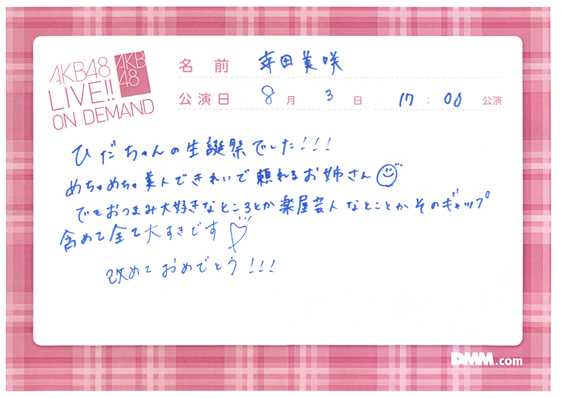 AKB48
LIVE!!
ON DEMAND
AKB
48
名前 幸田美咲
公演日 8月3日 17:00 公演
ひだちゃんの生誕祭でした!!!
めちゃめちゃ美人できれいで頼れるお姉さん
でもおつまみ大好きなところとか楽屋芸人なとことかそのギャップ
含めて全て大すきです
改めておめでとう!!!
DMM.com